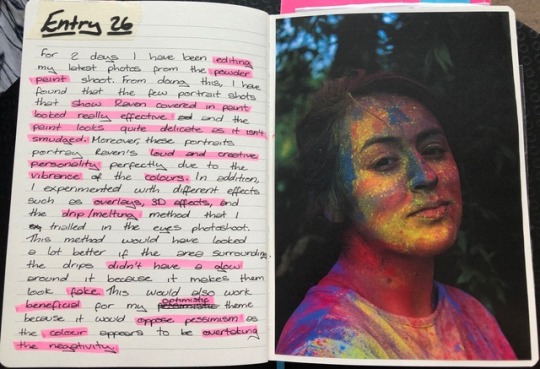 Entry 26
For 2 days I have been editing
my latest photos from the powder
paint shoot. From doing this, I have
found that the few portrait shots
that show Raven covered in paint
looked really effective and the
paint looks quite delicate as it isn't
smudged. Moreover, these portraits
portray Raven's loud and creative
personality perfectly due to the
vibrance of the colours. In addition,
I experimented with different effects
such as overlays, 3D effects, and
the drip/melting method that I
trialled in the eyes photoshoot.
This method would have looked
a lot better if the area surrounding
the drips didn't have a glow
around it because it makes them
look fake. This would also work
beneficial for my optimistic theme
because it would oppose pessimism as
the colour appears to be overtaking
the negativity.